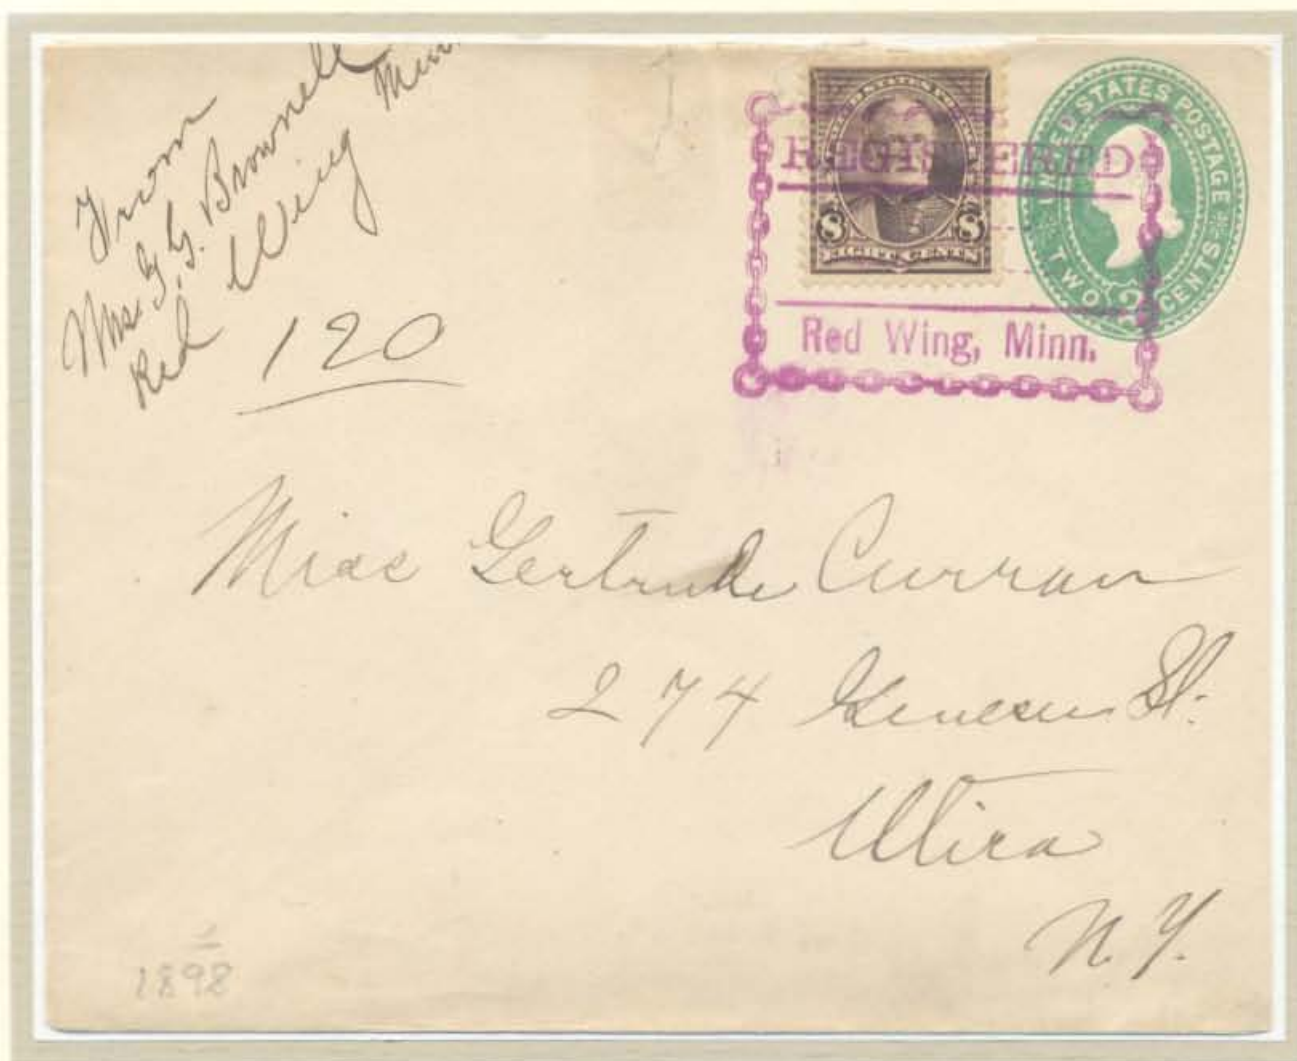 From
Mrs G. G. Brownell
Red Wing Minn
120
REGISTERED
8 8
EIGHT CENTS
Red Wing, Minn.
UNITED STATES POSTAGE
TWO 2 CENTS
Miss Gertrude Curran
274 Genesee St.
Utica
N. Y.
1898